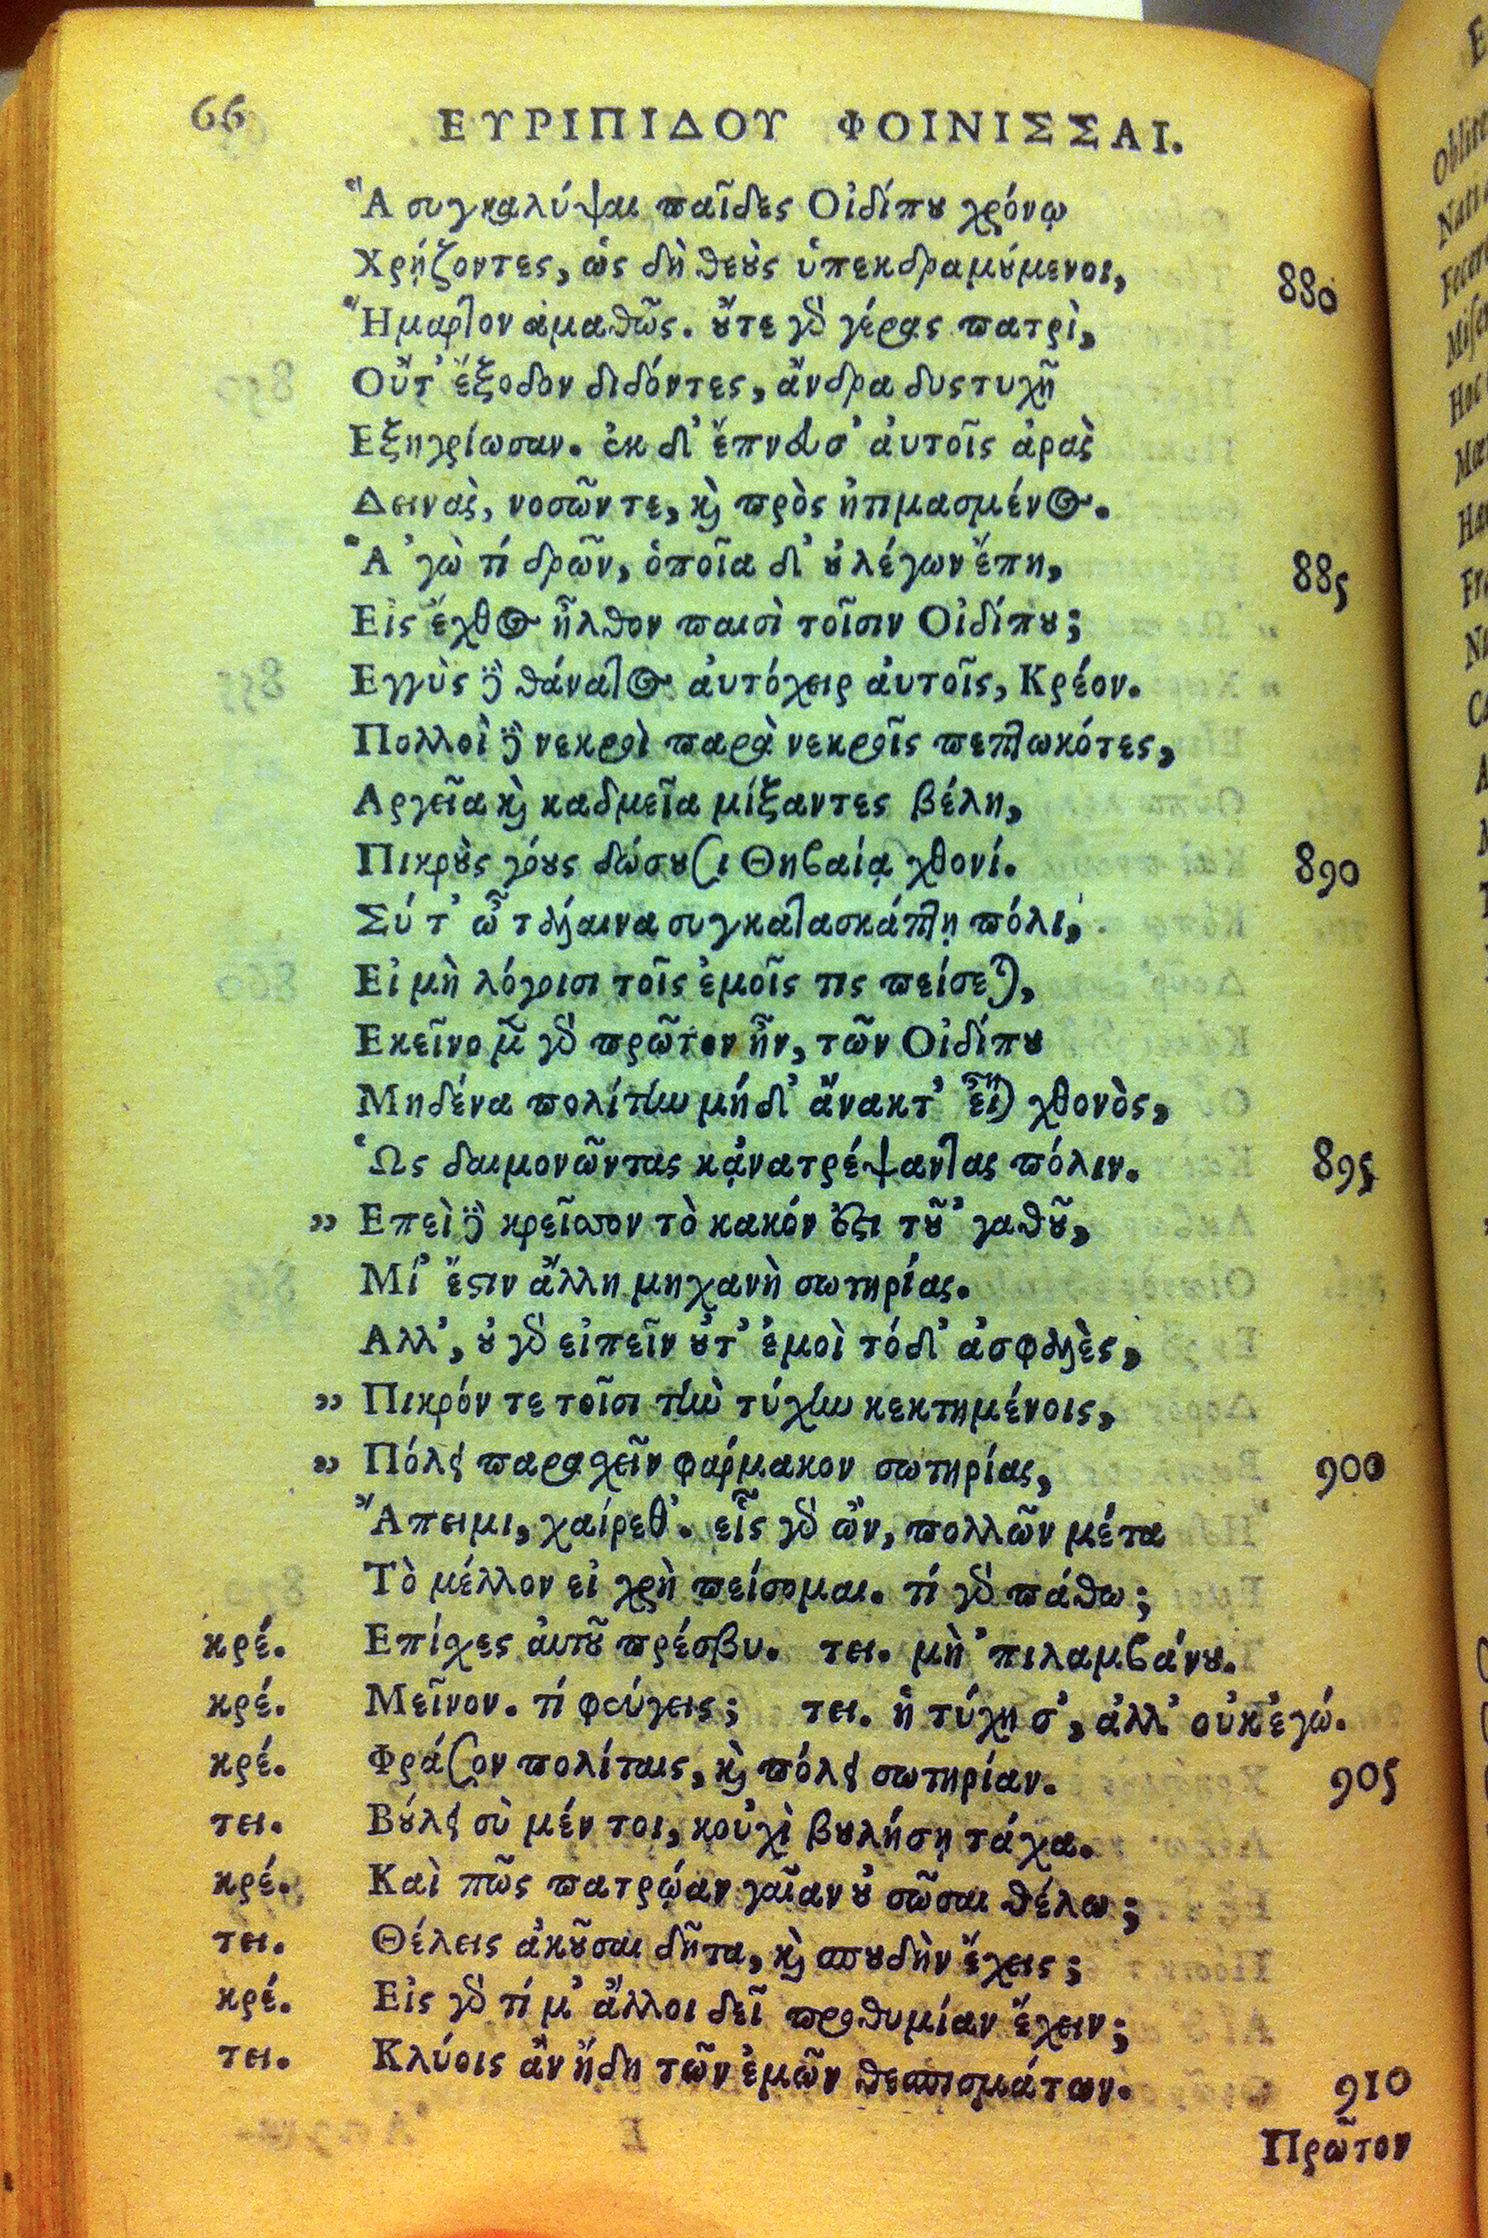 66 ΕΥΡΙΠΙΔΟΥ ΦΟΙΝΙΣΣΑΙ.
Ἃ συγκαλύψαι παῖδες Οἰδίπου χρόνῳ
Χρῄζοντες, ὡς δὴ θεοὺς ὑπεκδραμούμενοι, 880
Ἥμαρτον ἀμαθῶς. οὔτε γὰρ γέρας πατρὶ,
Οὔτ' ἔξοδον διδόντες, ἄνδρα δυςτυχῆ
Εξηγρίωσαν. ἐκ δ' ἔπνευσ' ἀυτοῖς ἀρὰς
Δεινὰς, νοσῶν τε, καὶ πρὸς ἠτιμασμένος.
Ἃ 'γὼ τί δρῶν, ὁποῖα δ' οὐ λέγων ἔπη, 885
Εἰς ἔχθος ἦλθον παισὶ τοῖσιν Οἰδίπου;
Εγγὺς δὲ θάνατος ἀυτόχειρ ἀυτοῖς, Κρέον.
Πολλοὶ δὲ νεκροὶ παρὰ νεκροῖς πεπτωκότες,
Αργεῖα καὶ καδμεῖα μίξαντες βέλη,
Πικροὺς γόους δώσουσι Θηβαίᾳ χθονί. 890
Σύ τ' ὦ τάλαινα συγκατασκάπτῃ πόλι,
Εἰ μὴ λόγοισι τοῖς ἐμοῖς τις πείσεται,
Εκεῖνο μὲν γὰρ πρῶτον ἦν, τῶν Οἰδίπου
Μηδένα πολίτην μήδ' ἄνακτ' εἶναι χθονὸς,
Ὡς δαιμονῶντας κᾀνατρέψαντας πόλιν. 895
„ Επεὶ δὲ κρεῖσσον τὸ κακόν ἐστι τοῦ 'γαθοῦ,
Μί' ἔστιν ἄλλη μηχανὴ σωτηρίας.
Αλλ', οὐ γὰρ εἰπεῖν οὔτ' ἐμοὶ τόδ' ἀσφαλὲς,
„ Πικρόν τε τοῖσι τὴν τύχην κεκτημένοις,
„ Πόλει παραχεῖν φάρμακον σωτηρίας, 900
Ἄπειμι, χαίρεθ'. εἷς γὰρ ὢν, πολλῶν μέτα
Τὸ μέλλον εἰ χρὴ πείσομαι. τί γὰρ πάθω;
κρέ. Επίσχες ἀυτοῦ πρέσβυ. τει. μὴ 'πιλαμβάνου.
κρέ. Μεῖνον. τί φεύγεις; τει. ἡ τύχη σ', ἀλλ' οὐκ ἐγώ.
κρέ. Φράσον πολίταις, καὶ πόλει σωτηρίαν. 905
τει. Βούλει σὺ μέν τοι, κοὐχὶ βουλήσῃ τάχα.
κρέ. Καὶ πῶς πατρῴαν γαῖαν οὐ σῶσαι θέλω;
τει. Θέλεις ἀκοῦσαι δῆτα, καὶ σπουδὴν ἔχεις;
κρέ. Εἰς γὰρ τί μ' ἄλλοι δεῖ προθυμίαν ἔχειν;
τει. Κλύοις ἂν ἤδη τῶν ἐμῶν θεσπισμάτων. 910
Πρῶτον